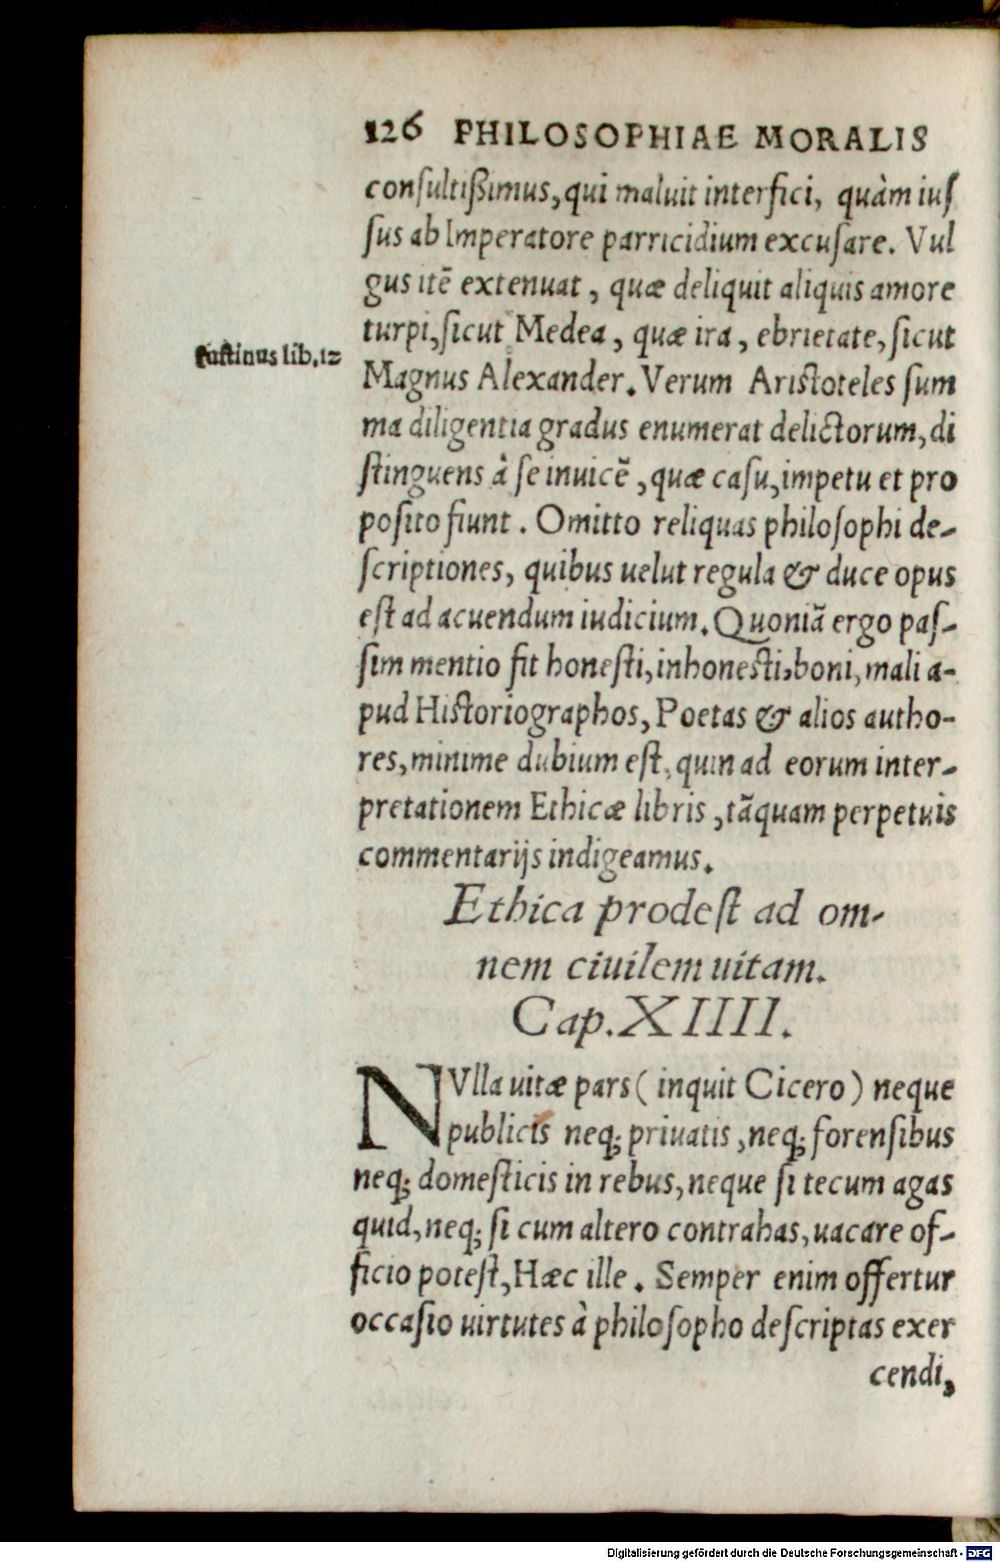 126 PHILOSOPHIAE MORALIS
conſultißimus, qui maluit interfici, quàm iuſ
ſus ab Imperatore parricidium excuſare. Vul
gus itē extenuat, quæ deliquit aliquis amore
turpi, ſicut Medea, quæ ira, ebrietate, ſicut
Iustinus lib. 12
Magnus Alexander. Verum Ariſtoteles ſum
ma diligentia gradus enumerat delictorum, di
ſtinguens à ſe inuicē, quæ caſu, impetu et pro
poſito fiunt. Omitto reliquas philoſophi de-
ſcriptiones, quibus uelut regula & duce opus
eſt ad acuendum iudicium. Quoniā ergo paſ-
ſim mentio fit honeſti, inhoneſti, boni, mali a-
pud Hiſtoriographos, Poetas & alios autho-
res, minime dubium eſt, quin ad eorum inter-
pretationem Ethicæ libris, tāquam perpetuis
commentarijs indigeamus.
Ethica prodeſt ad om-
nem ciuilem uitam.
Cap. XIIII.
NVlla uitæ pars (inquit Cicero) neque
publicis neq; priuatis, neq; forenſibus
neq; domeſticis in rebus, neque ſi tecum agas
quid, neq; ſi cum altero contrahas, uacare of-
ficio poteſt, Hæc ille. Semper enim offertur
occaſio uirtutes à philoſopho deſcriptas exer
cendi,
Digitalisierung gefördert durch die Deutsche Forschungsgemeinschaft - DFG